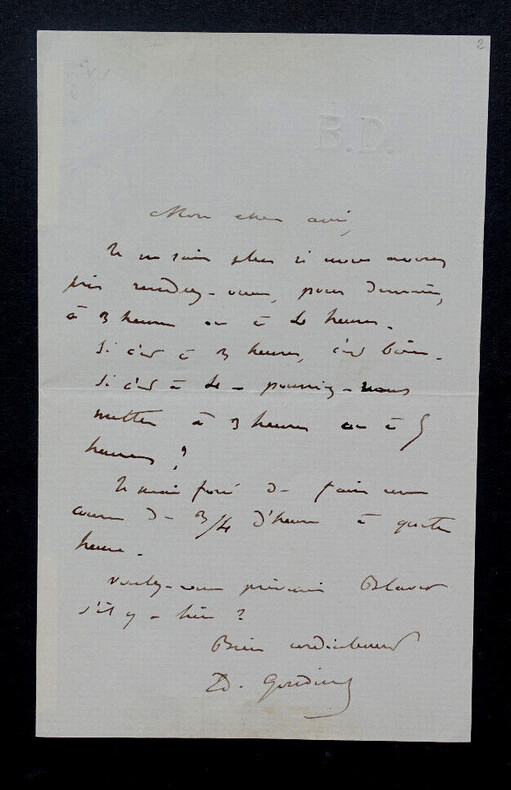 2
B.D.
Mon cher ami,
Je ne sais plus si nous avons
pris rendez-vous, pour demain,
à 3 heures ou à 4 heures.
Si c'est à 3 heures, c'est bien.
Si c'est à 4 - pourriez-vous
mettre à 3 heures ou à 5
heures ?
Je serai forcé de faire une
course de 3/4 d'heure à quatre
heures.
Voulez-vous prévenir Blavet
s'il y a lieu ?
Bien cordialement
Ed. Gondinet